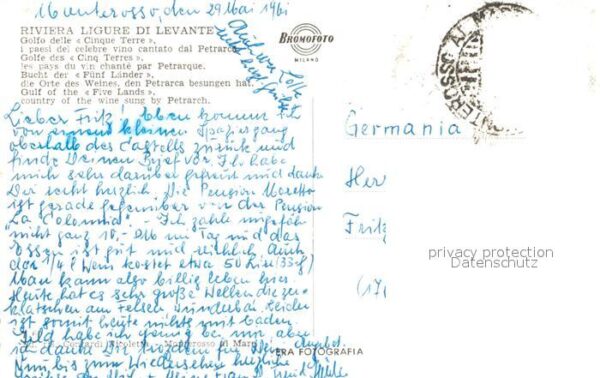 Monterosso, den 29 Mai 1961
RIVIERA LIGURE DI LEVANTE
Golfo delle « Cinque Terre »,
i paesi del celebre vino cantato dal Petrarca.
Golfe des « Cinq Terres »
les pays du vin chanté par Petrarque.
Bucht der « Fünf Länder »,
die Orte des Weines, den Petrarca besungen hat.
Gulf of the « Five Lands »,
country of the wine sung by Petrarch.
BROMOFOTO
MILANO
Lieber Fritz! Eben komme ich
von einem kleinen Spaziergang
oberhalb des Castells zurück und
finde Deinen Brief vor. Ich habe
mich sehr darüber gefreut und danke
Dir recht herzlich. Die Pension Moretto
ist gerade gegenüber von der Pension
"La Colonnina" - Ich zahle ungefähr
nicht ganz 10,- DM im Tag und das
Essen ist gut und reichlich. Auch
der 1/4 l Wein kostet etwa 50 Lire (33 Pf)
Man kann also billig leben hier
Heute hat es sehr große Wellen die
klatschen am Felsen wunderbar. Leider
ist somit heute nichts mit baden
Geld habe ich genug bei mir aber
ich danke Dir trotzdem für
Nun bis zum Wiedersehen herzliche
Germania
Her
Fritz
(17
privacy protection
Datenschutz
MONTEROSSO AL M
Monterosso al Mare
VERA FOTOGRAFIA